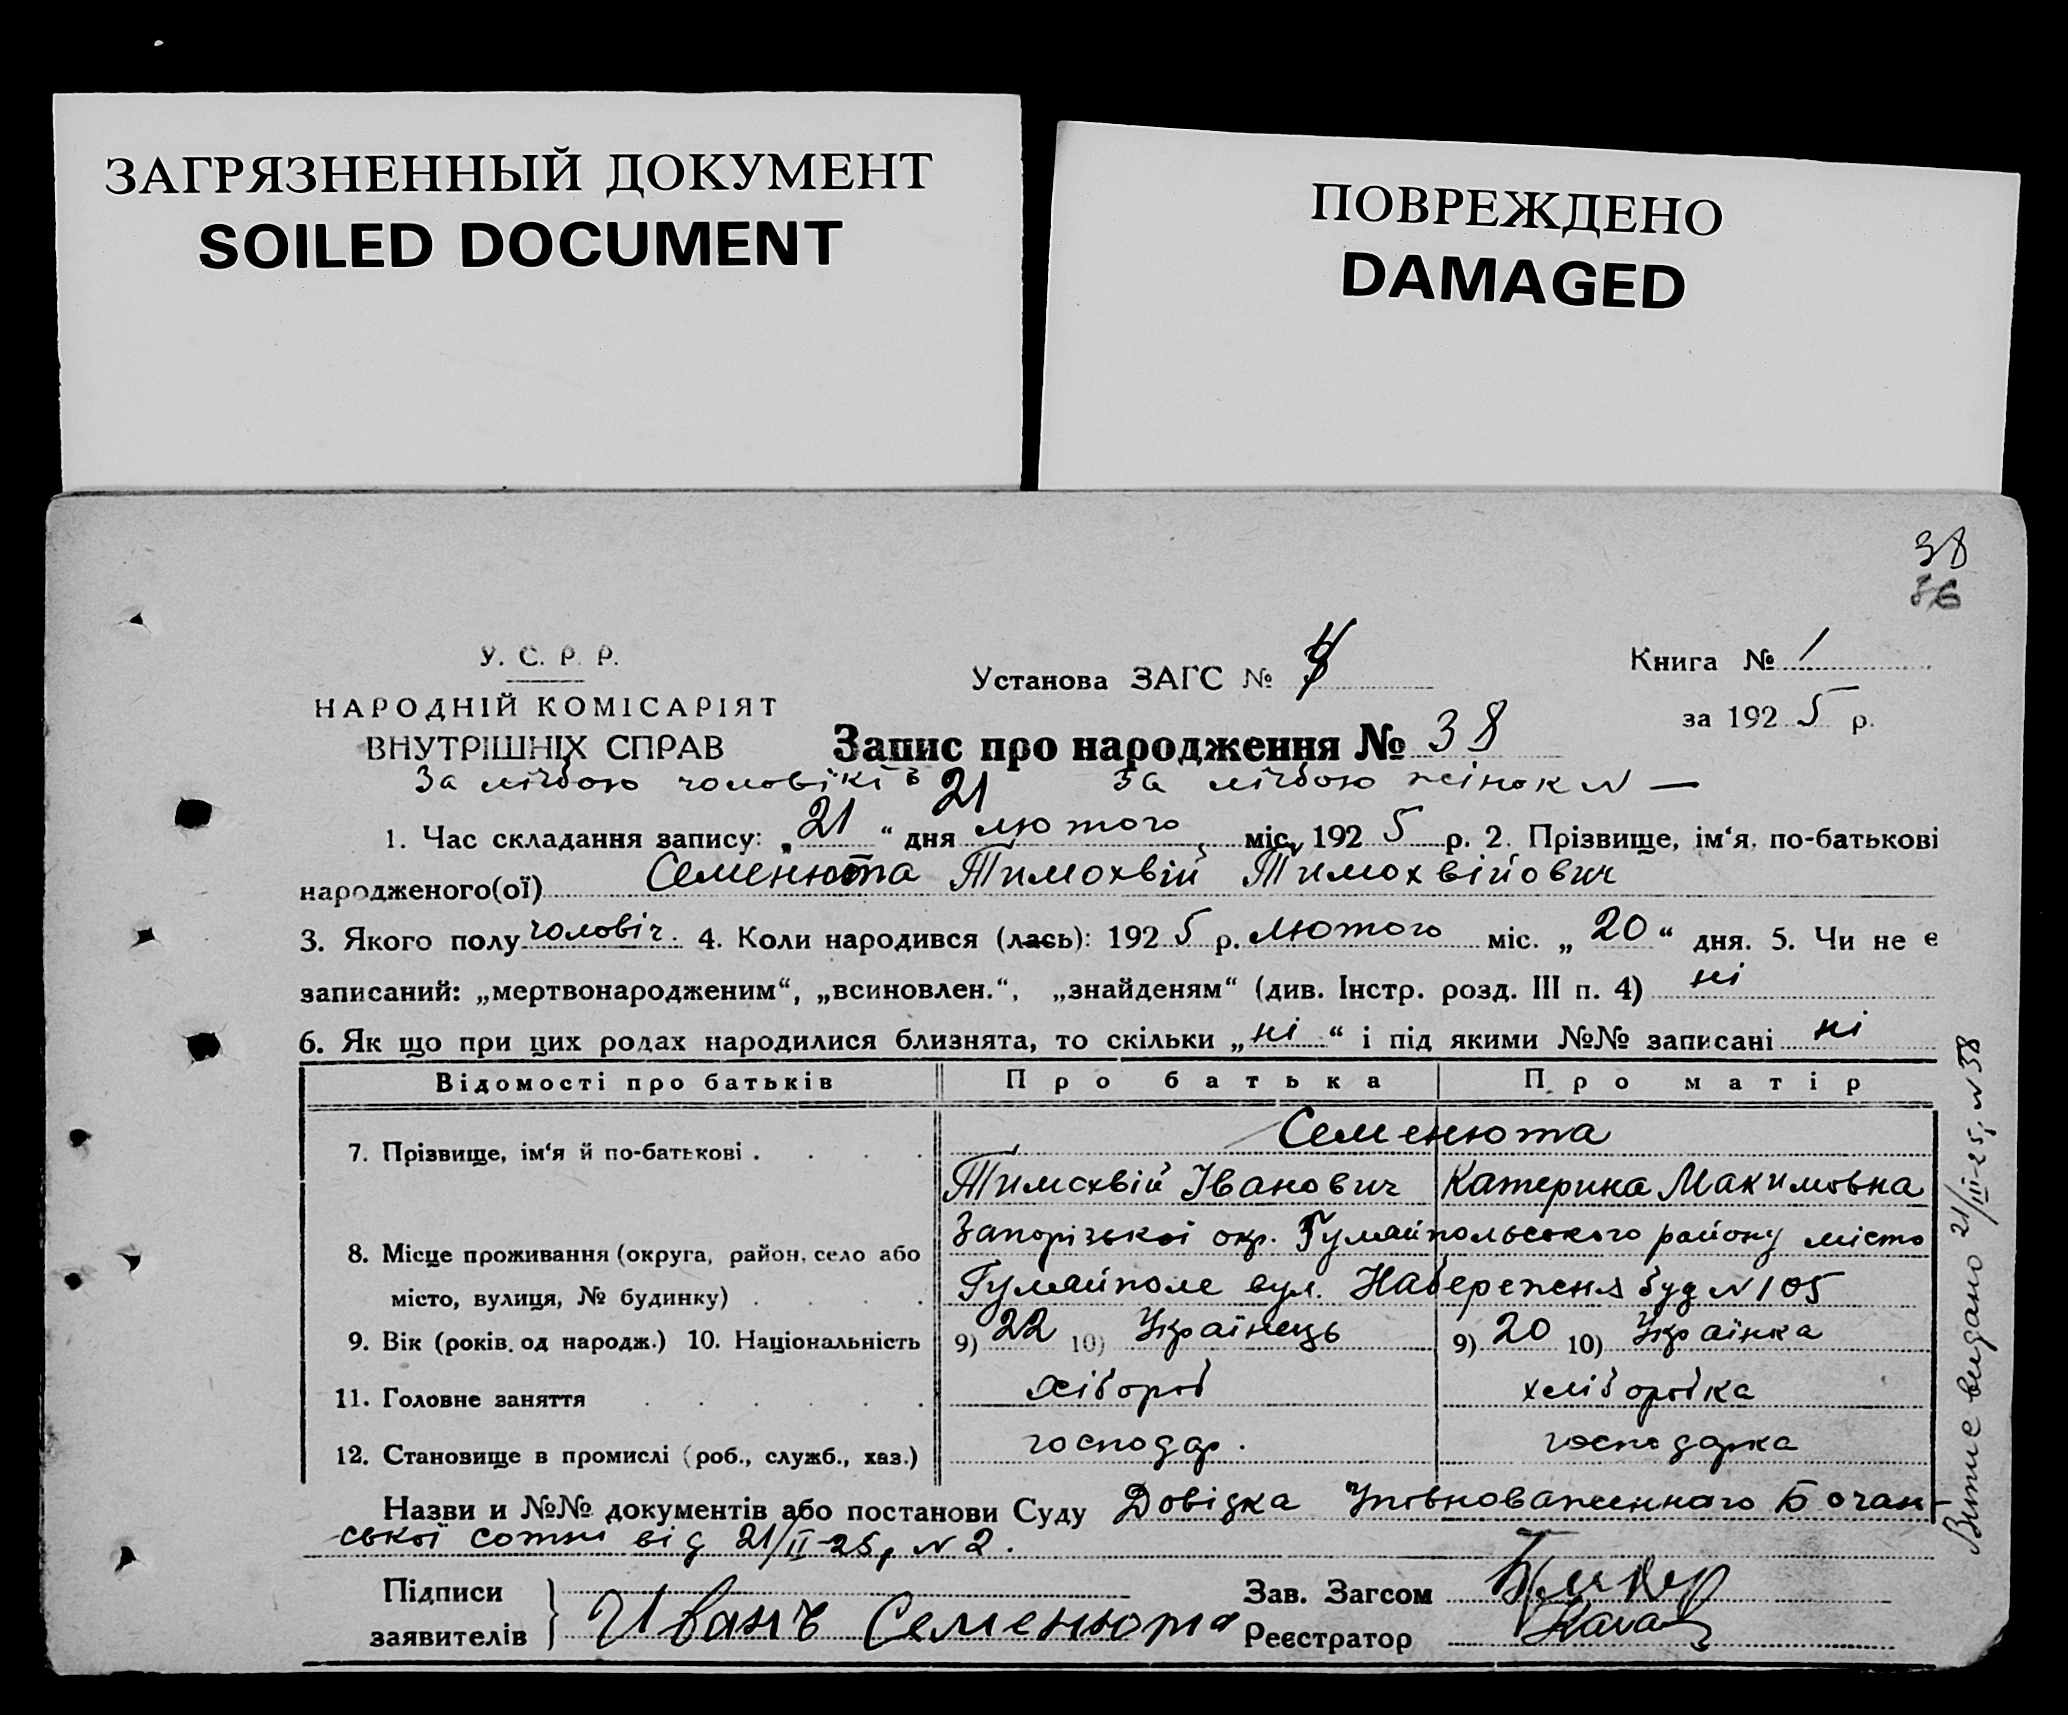 ЗАГРЯЗНЕННЫЙ ДОКУМЕНТ
SOILED DOCUMENT
ПОВРЕЖДЕНО
DAMAGED
38
36
У. С. Р. Р.
НАРОДНІЙ КОМІСАРІЯТ
ВНУТРІШНІХ СПРАВ
Установа ЗАГС №
Книга № 1
за 1925 р.
Запис про народження № 38
За лічбою чоловіків 21 За лічбою жінок № —
1. Час складання запису: „21“ дня лютого міс. 1925 р. 2. Прізвище, ім‘я, по-батькові
народженого(ої) Семенюта Тимохвій Тимохвійович
3. Якого полу чоловіч. 4. Коли народився (лась): 1925 р. лютого міс. „20“ дня. 5. Чи не є
записаний: „мертвонародженим“, „всиновлен.“, „знайденям“ (див. Інстр. розд. III п. 4) ні
6. Як що при цих родах народилися близнята, то скільки „ні“ і під якими №№ записані ні
Відомості про батьків Про батька Про матір
7. Прізвище, ім‘я й по-батькові . . . . Семенюта
Тимохвій Іванович Катерина Макимовна
8. Місце проживання (округа, район, село або Запорізької окр. Гуляйпольського району місто
місто, вулиця, № будинку) . . . . Гуляйполе вул. Набережня буд № 105
9. Вік (років. од народж.) 10. Національність 9) 22 10) Українець 9) 20 10) Українка
11. Головне заняття . . . . . . хлібороб хліборобка
12. Становище в промислі (роб., служб., хаз.) господар. господарка
Назви и №№ документів або постанови Суду Довідка Уповноваженного Бочан-
ської сотні від 21/II-25, № 2.
Підписи
заявителів } Иванъ Семенюта
Зав. Загсом
Реєстратор
Витис видано 21/III-25, № 38